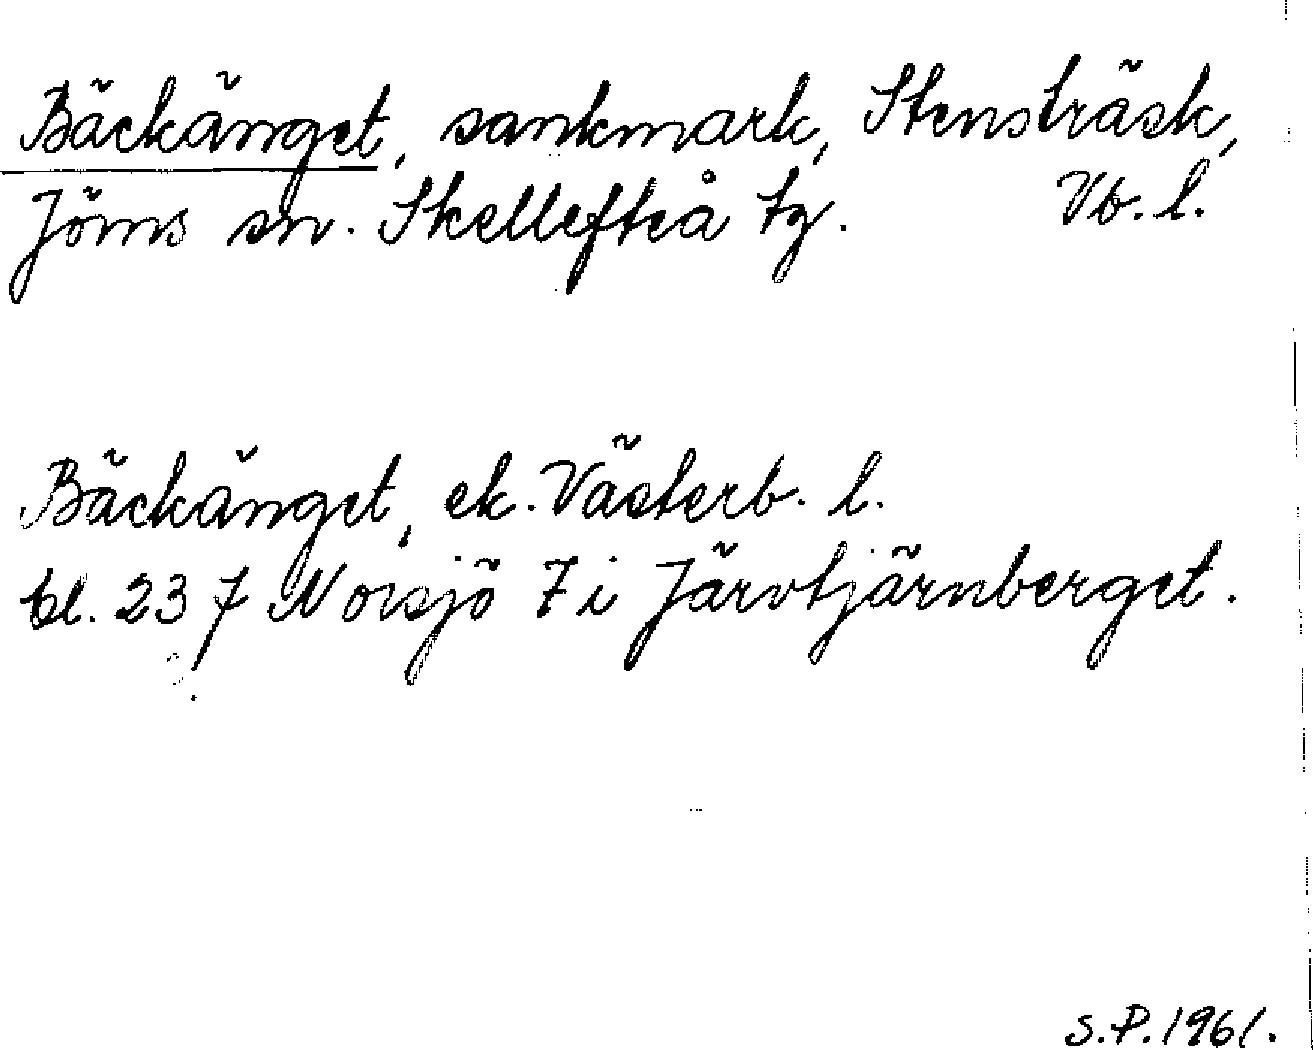 Bäckänget, sankmark, Stensträsk,
Jörns sn. Skellefteå tg. Vb. l.
Bäckänget, ek. Västerb. l.
bl. 23 f Norsjö 7 i Järvtjärnberget.
S.P. 1961.